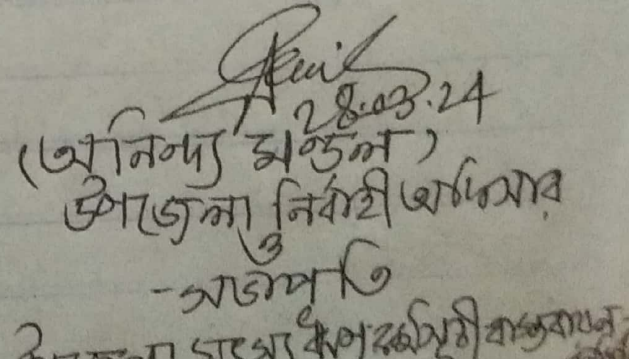 28.03.24
(অনিন্দ্য মণ্ডল)
উপজেলা নির্বাহী অফিসার
ও
-সভাপতি
উপজেলা কর্মসূচী বাস্তবায়ন